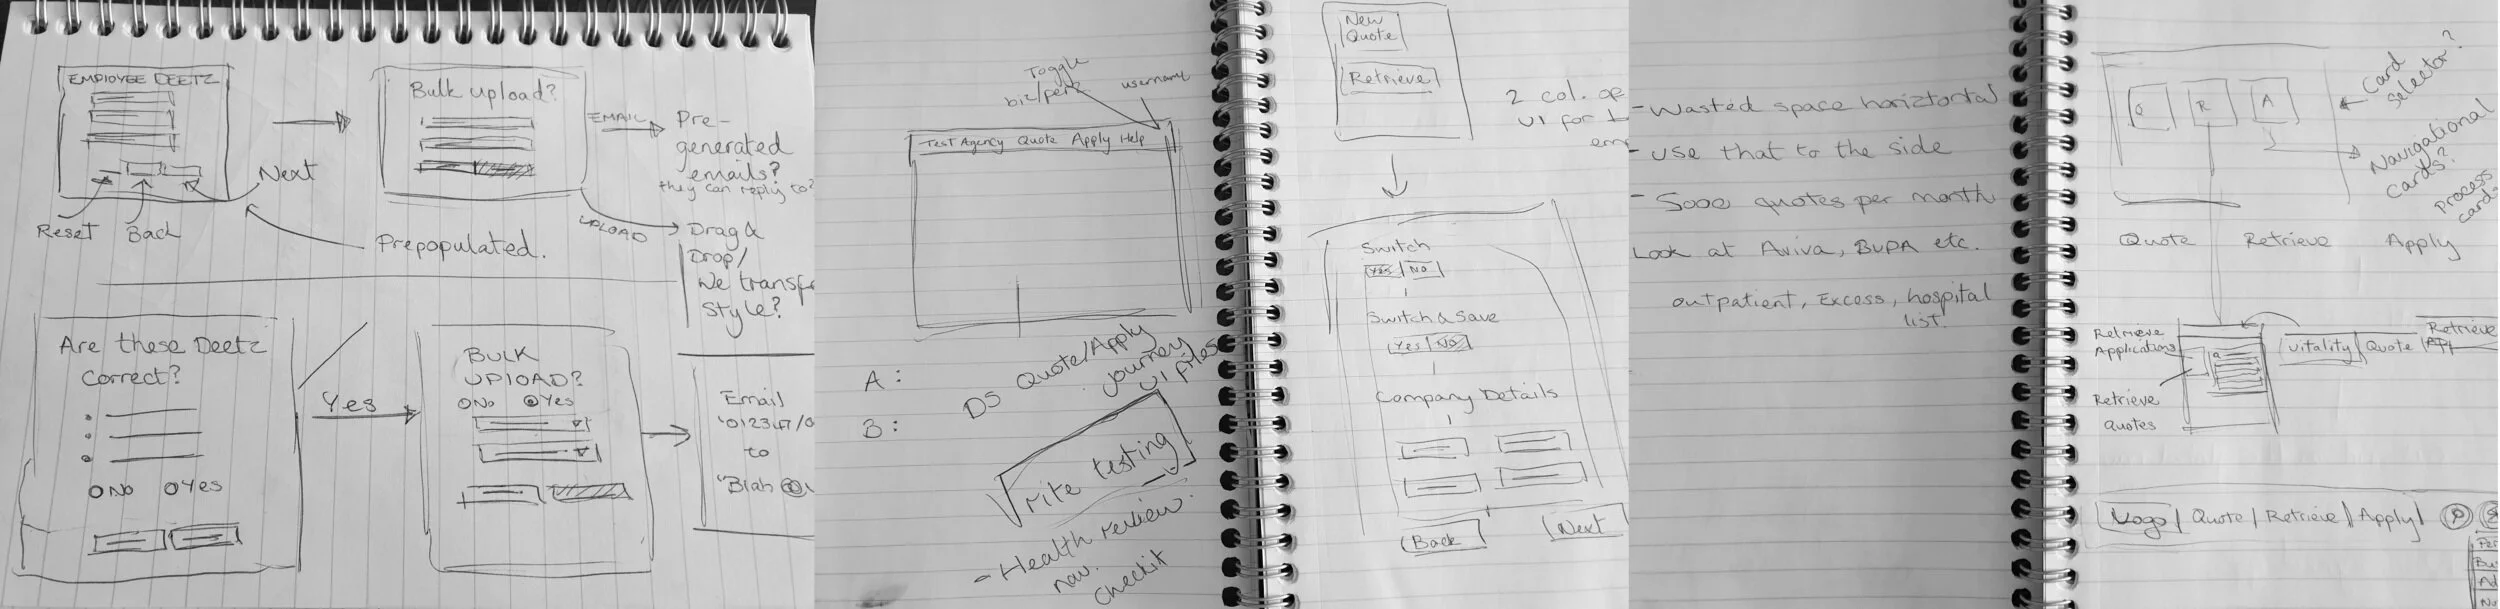 EMPLOYEE DEETZ
Next
Reset
Back
Prepopulated.
Bulk upload?
EMAIL
Pre-
generated
emails?
they can reply to?
UPLOAD
Drag &
Drop/
We transf
style?
Are these Deetz
correct?
No Yes
Yes
BULK
UPLOAD?
No Yes
Email
to
Toggle
biz/perz
username
Test Agency Quote Apply Help
A:
B:
DS Quote/Apply
journey
UI files
rite testing
- Health review
nav.
checkit
New
Quote
Retrieve
2 col. of
UI for
Switch
Yes No
Switch & Save
Yes No
Company Details
Back
Next
- Wasted space horiztontal
- use that to the side
- 5000 quotes per month
Look at Aviva, BUPA etc.
outpatient, Excess, hospital
list.
Q R A
Card
selector?
Navigational
cards?
process
card
Quote Retrieve Apply
Retrieve
Applications
Retrieve
Quotes
Vitality Quote Retrieve
Logo | Quote | Retrieve | Apply
Per
Bu
Ad